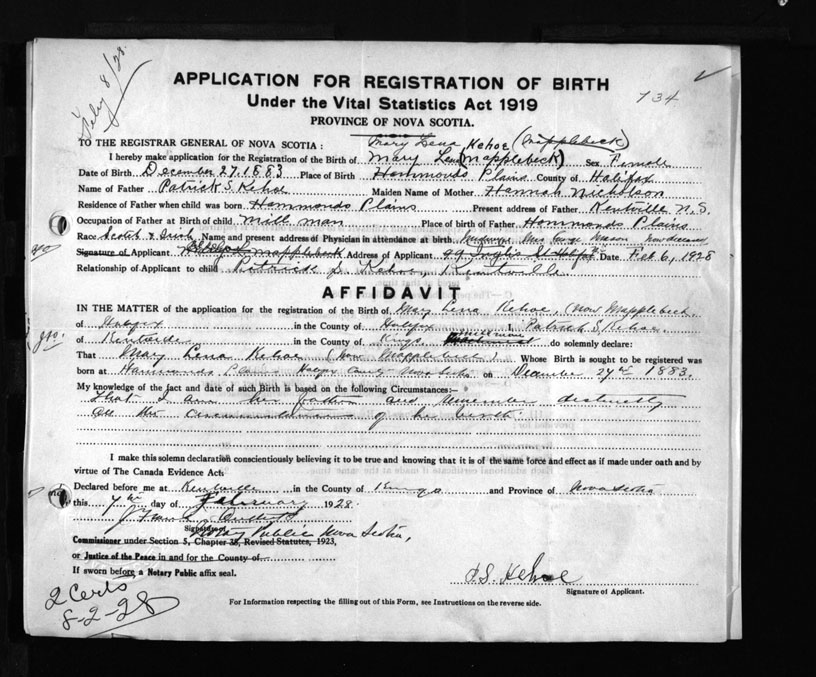 Feby 8/28.
APPLICATION FOR REGISTRATION OF BIRTH
Under the Vital Statistics Act 1919
734
PROVINCE OF NOVA SCOTIA.
Mary Lena Kehoe (Mapplebeck)
TO THE REGISTRAR GENERAL OF NOVA SCOTIA :
I hereby make application for the Registration of the Birth of Mary Lena (Mapplebeck) Sex Female
Date of Birth December 27, 1883 Place of Birth Hammonds Plains County of Halifax
Name of Father Patrick S. Kehoe Maiden Name of Mother Hannah Nicholson
Residence of Father when child was born Hammonds Plains Present address of Father Kentville N.S.
Occupation of Father at Birth of child mill man Place of birth of Father Hammonds Plains
Race Scotch & Irish Name and present address of Physician in attendance at birth Mrs George
Signature of Applicant Mapplebeck Address of Applicant 99 St Halifax Date Feb 6, 1928
Relationship of Applicant to child Patrick S. Kehoe, Kentville
AFFIDAVIT
IN THE MATTER of the application for the registration of the Birth of Mary Lena Kehoe, (now Mapplebeck
of Halifax in the County of Halifax I, Patrick S. Kehoe
of Kentville in the County of Kings millman do solemnly declare:
That Mary Lena Kehoe (now Mapplebeck) Whose Birth is sought to be registered was
born at Hammonds Plains Halifax County Nova Scotia on December 27th 1883.
My knowledge of the fact and date of such Birth is based on the following Circumstances:
that I am her father and remember distinctly
all the circumstances of her birth.
I make this solemn declaration conscientiously believing it to be true and knowing that it is of the same force and effect as if made under oath and by
virtue of The Canada Evidence Act.
Declared before me at Kentville in the County of Kings and Province of Nova Scotia
this 7th day of February 1928.
Signature
Notary Public Nova Scotia,
Commissioner under Section 5, Chapter 38, Revised Statutes, 1923,
or Justice of the Peace in and for the County of
If sworn before a Notary Public affix seal.
P. S. Kehoe
Signature of Applicant.
2 Certs
8-2-28
For Information respecting the filling out of this Form, see Instructions on the reverse side.